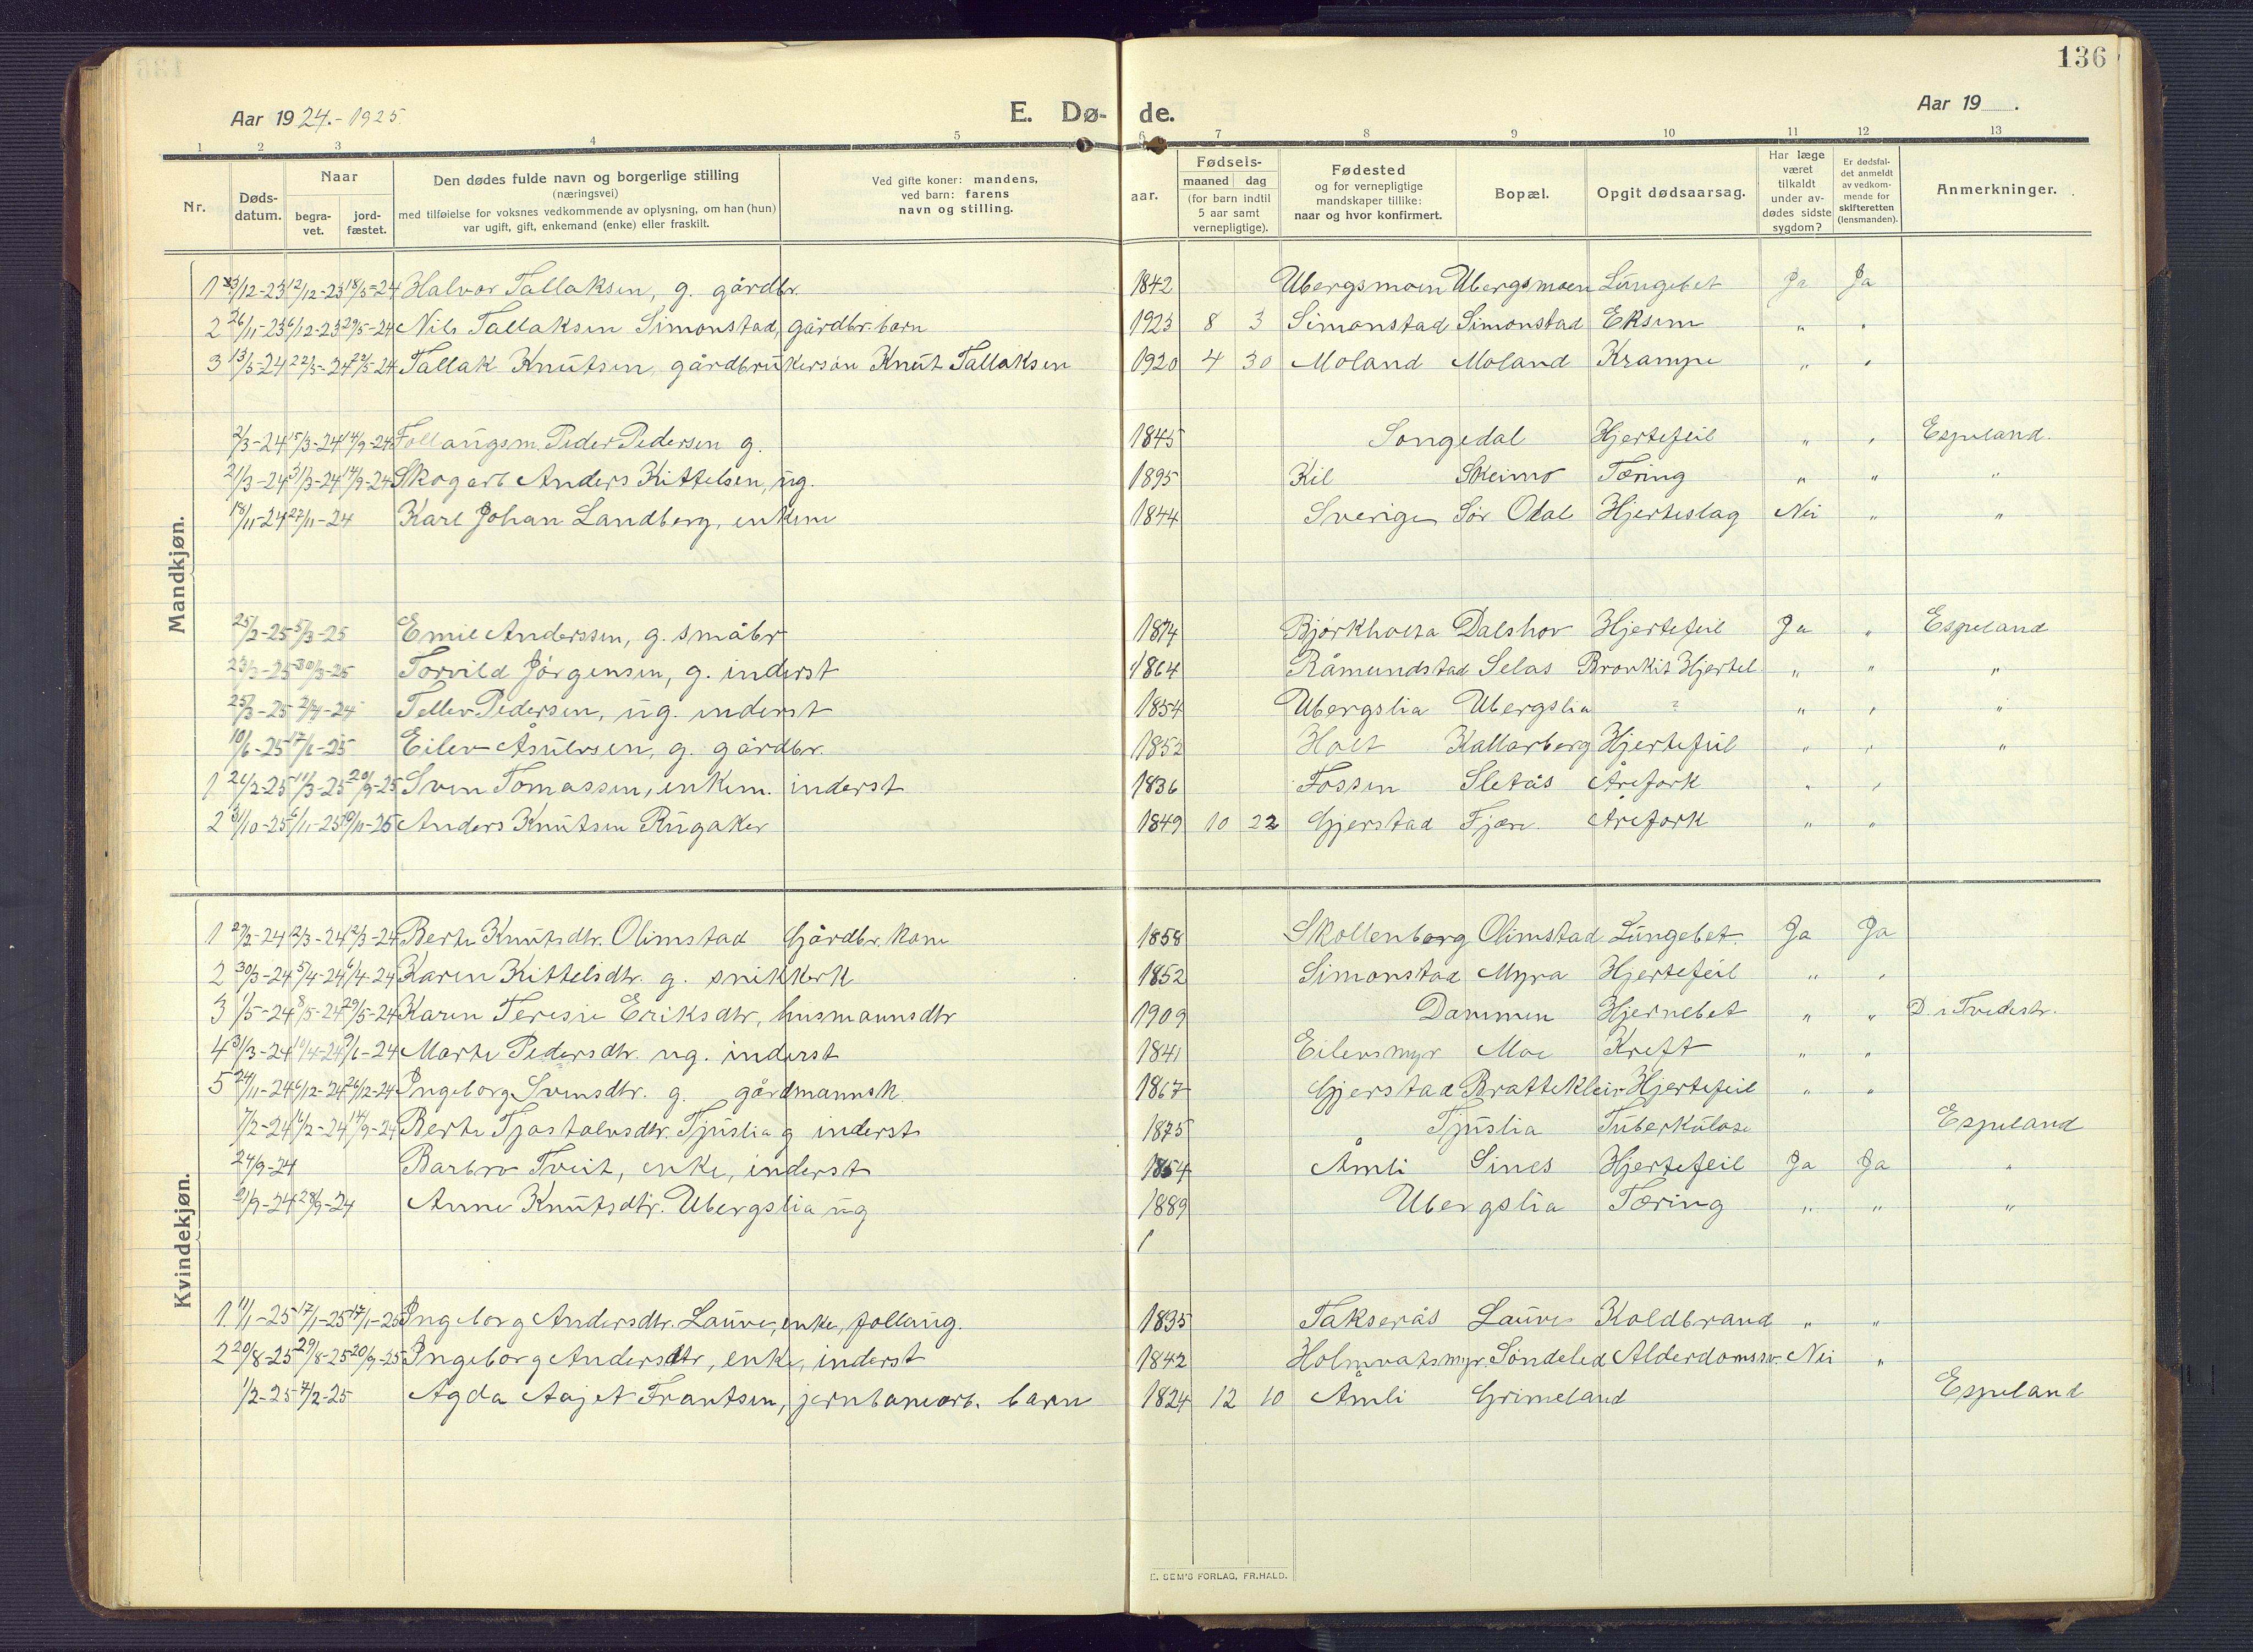 136
Aar 1924.-1925
E. Dø-
de.
Aar 19 .
1 2 3 4 5 6 7 8 9 10 11 12 13
Nr.
Døds-datum.
Naar
begra-vet.
jord-fæstet.
Den dødes fulde navn og borgerlige stilling
(næringsvei)
med tilføielse for voksnes vedkommende av oplysning, om han (hun)
var ugift, gift, enkemand (enke) eller fraskilt.
Ved gifte koner: mandens,
ved barn: farens
navn og stilling.
aar.
Fødsels-
maaned dag
(for barn indtil
5 aar samt
vernepligtige).
Fødested
og for vernepligtige
mandskaper tillike:
naar og hvor konfirmert.
Bopæl.
Opgit dødsaarsag.
Har læge
været
tilkaldt
under av-
dødes sidste
sygdom?
Er dødsfal-
det anmeldt
av vedkom-
mende for
skifteretten
(lensmanden).
Anmerkninger.
Mandkjøn.
1 /12-23 12/12-23 18/5-24 Halvor Tallaksen, g. gårdbr. 1842 Ubergsmoen Ubergsmoen Lungebet Ja Ja
2 26/11-23 6/12-23 29/5-24 Nils Tallaksen Simonstad, gårdbr. barn 1923 8 3 Simonstad Simonstad Eksem " "
3 13/5-24 22/5-24 22/5-24 Tallak Knutsen, gårdbrukersøn Knut Tallaksen 1920 4 30 Moland Moland Krampe " "
7/3-24 15/3-24 14/9-24 Follaugsm. Peder Pedersen g. 1845 Songedal Hjertefeil " " Espeland.
21/3-24 31/3-24 14/9-24 Skogarb Anders Kittelsen, ug. 1895 Kil Skeimo Tæring " " "
18/11-24 27/11-24 Karl Johan Landberg, enkem 1844 Sverige Sør Odal Hjerteslag Nei " "
25/2-25 5/3-25 Emil Anderssen, g. småbr 1874 Bjørkholta Dalshov Hjertefeil Ja " Espeland
23/3-25 30/3-25 Torvild Jørgensen, g. inderst 1864 Råmundstad Selas Bronkit Hjertel " " "
25/3-25 2/4-24 Tellev Pedersen, ug. inderst 1854 Ubergslia Ubergslia ? " " "
10/6-25 17/6-25 Eilev Åsulvsen, g. gårdbr. 1852 Holt Kallarberg Hjertefeil " " "
1 26/2-25 11/3-25 20/9-25 Sven Tomassen, enkem. inderst 1836 Fossen Sletås Årefork " "
2 31/10-25 6/11-25 /11-25 Anders Knutsen Rugaker 1849 10 22 Gjerstad Fjære. Årefork " "
Kvindekjøn.
1 27/2-24 12/3-24 12/3-24 Berte Knutsdtr. Olimstad Gårdbr. kone 1858 Skollenborg Olimstad Lungebet. Ja Ja
2 30/3-24 5/4-24 6/4-24 Karen Kittelsdtr. g. snikkerk 1852 Simonstad Myra Hjertefeil " "
3 1/5-24 8/5-24 29/5-24 Karen Teresie Eriksdtr, husmannsdtr 1909 Dammen Hjernebet " " D. i Tvedestr.
4 31/3-24 10/4-24 9/6-24 Marte Pedersdtr. ug. inderst 1841 Eilevsmyr Moe Kreft " "
5 24/11-24 6/12-24 26/12-24 Ingeborg Svensdtr. g. gårdmannsk. 1867 Gjerstad Bratteklein Hjertefeil " "
7/2-24 16/2-24 14/9-24 Berte Tjostolvsdtr. Tjuslia g inderst 1875 Tjuslia Tuberkulose Espeland
24/9-24 Barbro Tveit, enke, inderst 1854 Åmli Sines Hjertefeil Ja Ja "
21/9-24 28/9-24 Anne Knutsdtr. Ubergslia ug 1889 Ubergslia Tæring " " "
1
1 11/1-25 17/1-25 17/1-25 Ingeborg Andersdtr. Lauve, enke, follaug. 1835 Takserås Lauve Koldbrand " "
2 20/8-25 29/8-25 20/9-25 Ingeborg Andersdtr, enke, inderst 1842 Holmvatsmyr. Søndeled Alderdomssv. Nei "
1/2-25 7/2-25 Agda Aajet Frantsen, jernbanearb. barn 1824 12 10 Åmli Grimeland Espeland
E. SEM'S FORLAG, FR.HALD.